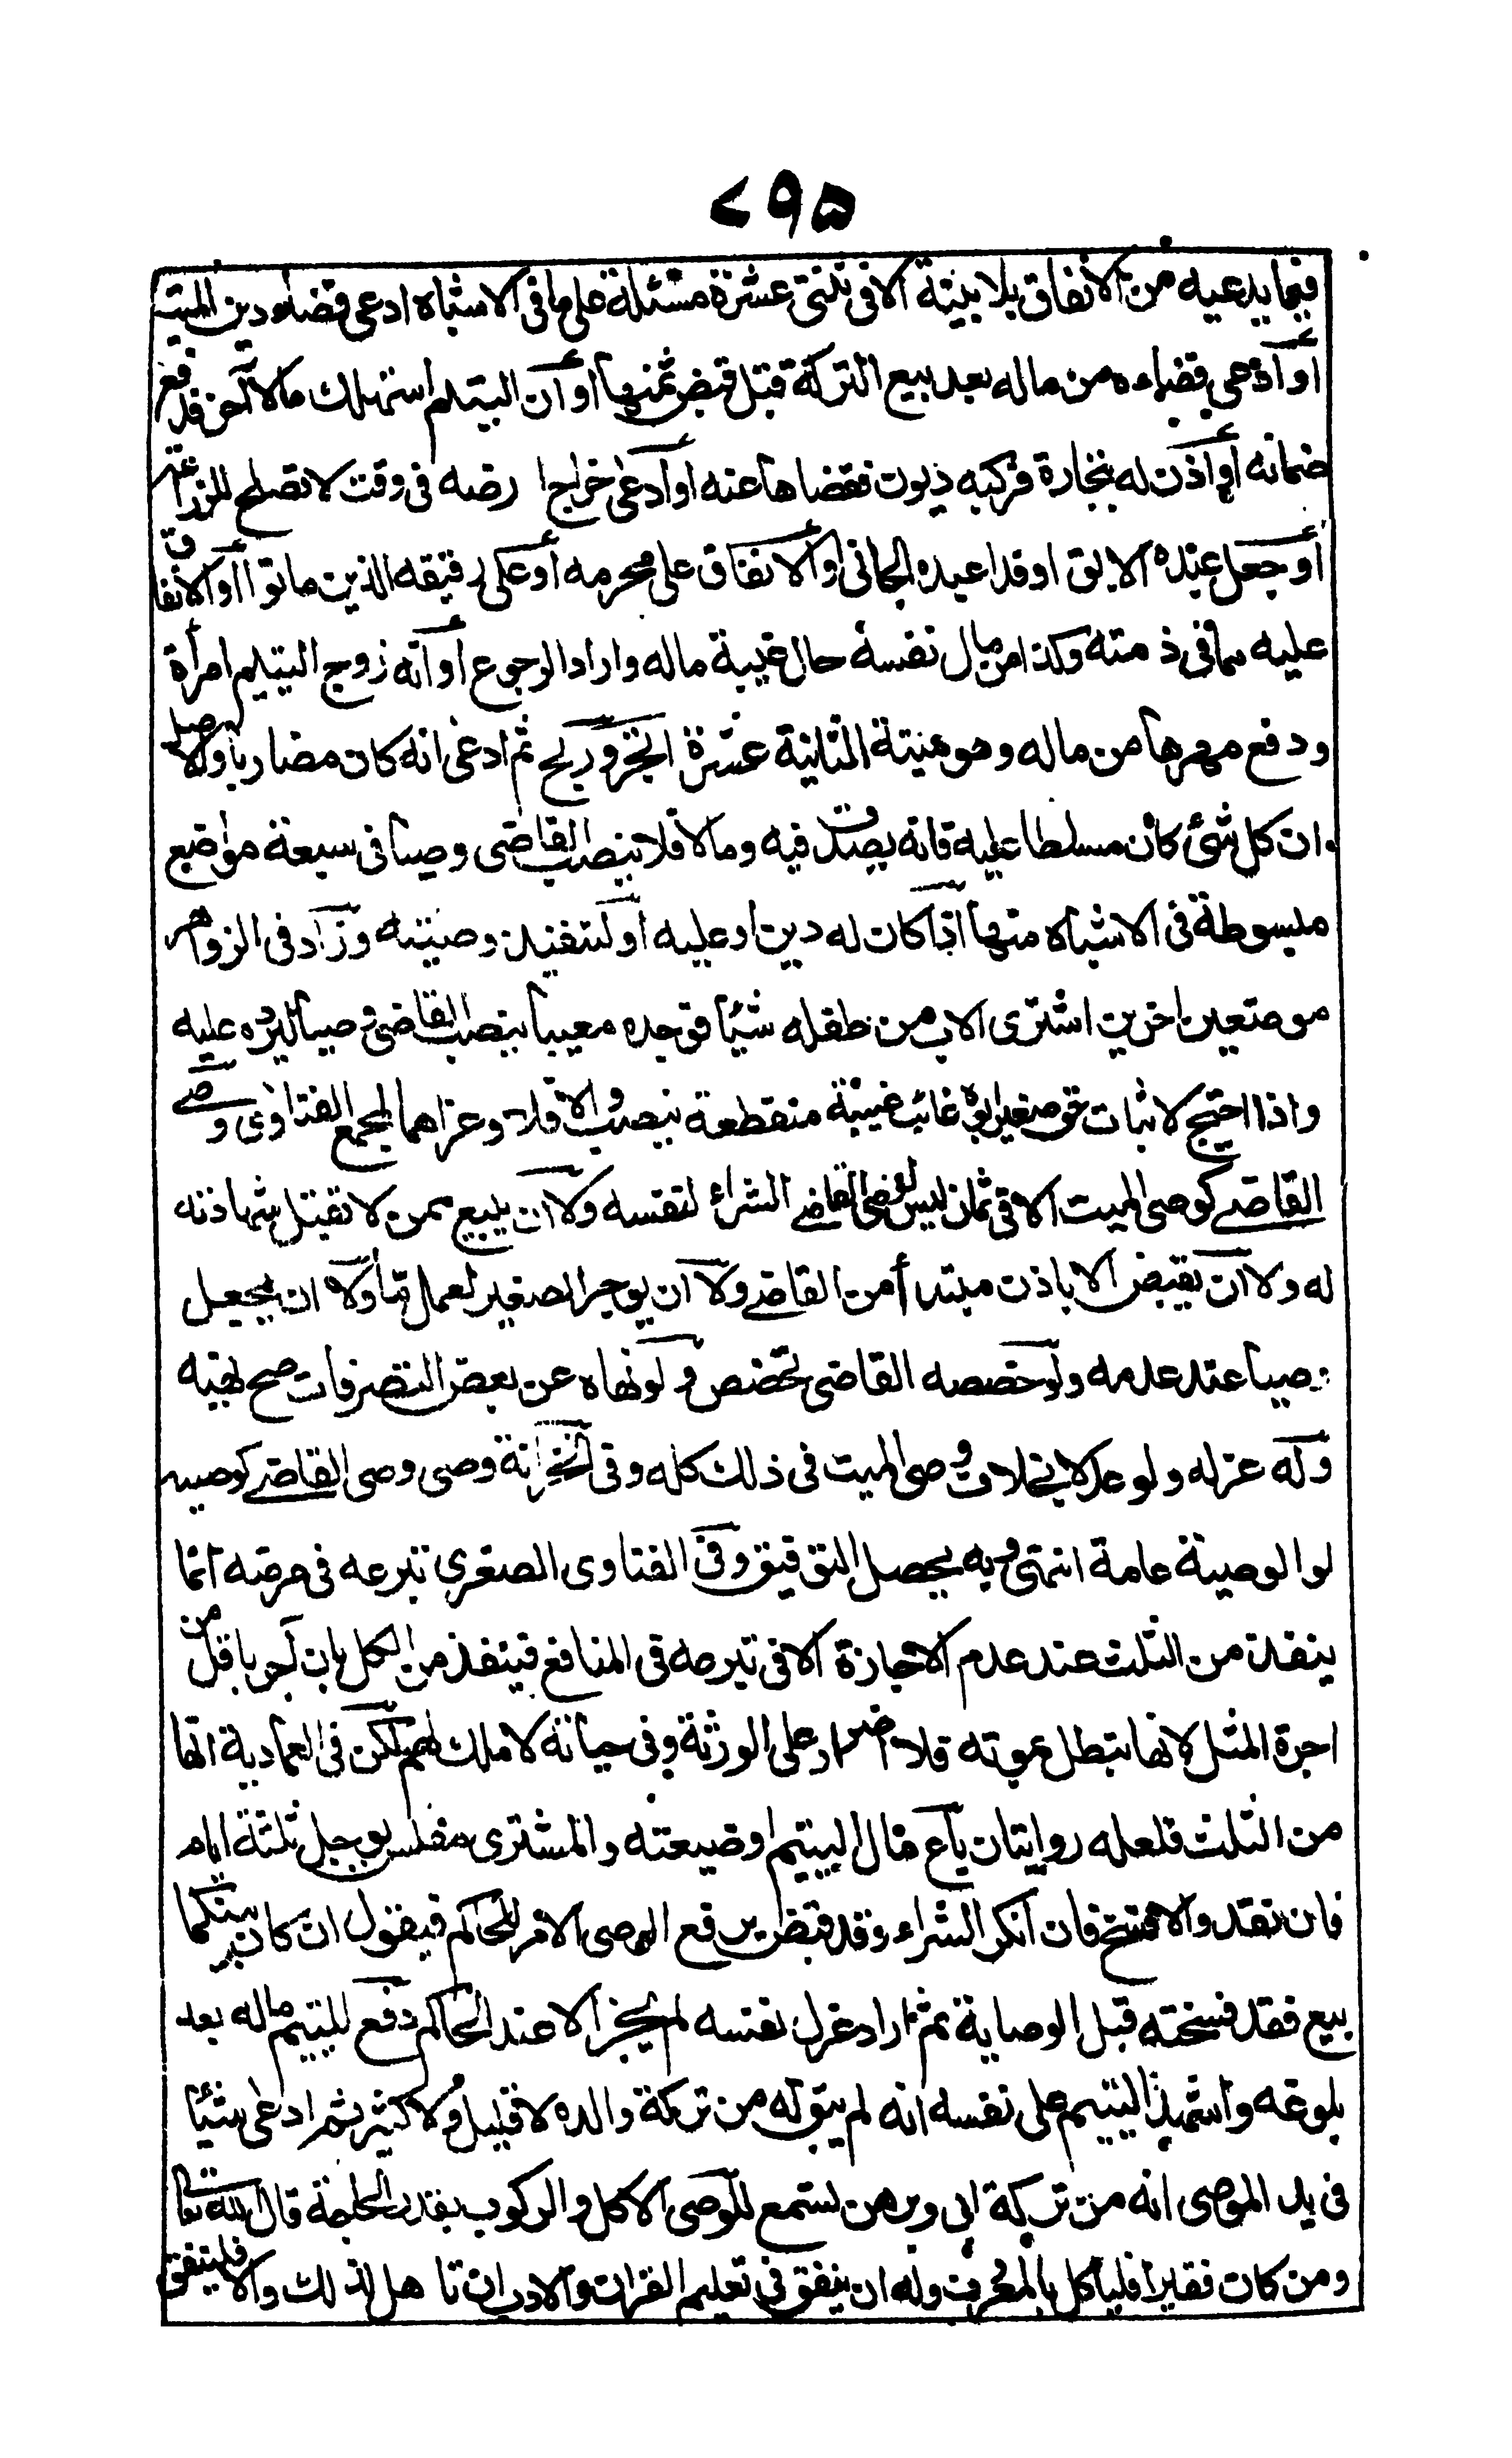 ٧٩٥
فيما يدعيه من الانفاق بلا بينة الا فى ثنتى عشرة مسئلة على ما فى الاشباه ادعى قضاء دين الميت
أو ادعى قضاءه من ماله بعد بيع التركة قبل قبض ثمنها أو أن اليتيم استهلك مالا لآخر فدفع
ضمانه أو اذن له بتجارة فركبه ديون فقضاها عنه أو ادعى خراج ا رضه فى وقت لا تصلح للزراعة
أو جعل عبده الابق او فداء عبده الجانى أو الانفاق على محرمه أو على رقيقه الذين ماتوا أو الانفاق
عليه مما فى ذمته وكذا من مال نفسه حال غيبة ماله واراد الرجوع أو أنه زوج اليتيم امرأة
ودفع مهرها من ماله وهى ميتة الثانية عشرة اتجر وربح ثم ادعى انه كان مضاربا والاصل
ان كل شئ كان مسلطا عليه فانه يصدق فيه ومالا فلا ينصب القاضى وصيا فى سبعة مواضع
مبسوطة فى الاشباه منها اذا كان له دين او عليه أو لتنفيذ وصيته وزاد فى الزواهر
موضعين اخرين اشترى الاب من طفله شيئا فوجده معيبا ينصب القاضى وصيا ليرده عليه
واذا احتيج لاثبات حق صغير ابوه غائب غيبة منقطعة ينصب والا فلا وعزاهما لمجمع الفتاوى ووصى
القاضى كوصى الميت الا فى ثمان ليس لوصى القاضى الشراء لنفسه ولا ان يبيع ممن لا تقبل شهادته
له ولا ان يقبض الا باذن مبتدأ من القاضى ولا ان يوجر الصغير لعمل ما ولا ان يجعل
وصيا عند عدمه ولو خصصه القاضى تخصص ولو نهاه عن بعض التصرفات صح نهيه
وله عزله ولو عدلا بخلاف وصى الميت فى ذلك كله وفى الخزانة وصى وصى القاضى كوصيه
لو الوصية عامة انتهى وبه يحصل التوفيق وفى الفتاوى الصغرى تبرعه فى مرضه انما
ينفذ من الثلث عند عدم الاجازة الا فى تبرعه فى المنافع فينفذ من الكل بان آجر باقل من
اجرة المثل لانها تبطل بموته فلا اضرار على الورثة وفى حياته لا ملك لهم لكن فى العمادية انها
من الثلث فلعله روايتان باع مال اليتيم او ضيعته والمشترى مفلس يوجل ثلثة ايام
فان نقد والا فسخ فان أنكر الشراء وقد قبض يرفع الوصى الامر للحاكم فيقول ان كان بينكما
بيع فقد فسخته قبل الوصاية ثم اراد عزل نفسه لم يجز الا عند الحاكم دفع لليتيم ماله بعد
بلوغه واشهد اليتيم على نفسه انه لم يبق له من تركة والده لا قليل ولا كثير ثم ادعى شيئا
فى يد الموصى انه من تركة ابى وبرهن تسمع للوصى الاكل والركوب بقدر الحاجة قال الله تعالى
ومن كان فقيرا فليأكل بالمعروف وله ان ينفق فى تعليم القران والادب ان تا هل لذلك والا فلينفق